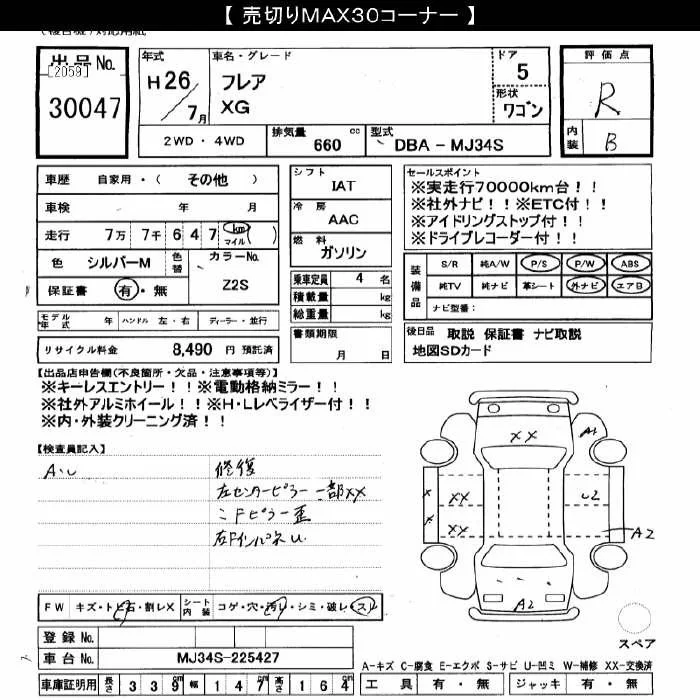 【 売切りMAX30コーナー 】
出品No.
[2059]
30047
年式
H26/7月
車名・グレード
フレア
XG
ドア
5
形状
ワゴン
評価点
R
内装
B
2WD ・ 4WD
排気量 660 cc
型式 DBA - MJ34S
車歴 自家用・( その他 )
車検 年 月
走行 7万 7千 6 4 7 km マイル ( )
色 シルバーM
色替
カラーNo.
Z2S
保証書 有・無
モデル年式 年 ハンドル 左・右 ディーラー・並行
リサイクル料金 8,490 円 預託済
シフト
IAT
冷房
AAC
燃料
ガソリン
乗車定員 4 名
積載量 kg
総重量 kg
書類期限
月 日
セールスポイント
※実走行70000km台!!
※社外ナビ!!※ETC付!!
※アイドリングストップ付!!
※ドライブレコーダー付!!
装備品
S/R 純A/W P/S P/W ABS
純TV 純ナビ 革シート 外ナビ エアB
ナビ型番:
後日品 取説 保証書 ナビ取説
地図SDカード
【出品店申告欄(不良箇所・欠品・注意事項等)】
※キーレスエントリー!!※電動格納ミラー!!
※社外アルミホイール!!※H・Lレベライザー付!!
※内・外装クリーニング済!!
【検査員記入】
A・U
修復
左センターピラー 一部XX
〃 Fピラー歪
右FインパネU
XX
A1
X
XX
U2
X
XX
A2
A2
FW キズ・トビ石・割レX
シート内装 コゲ・穴・汚レ・シミ・破レ・スレ
登録No.
車台No. MJ34S-225427
スペア
A-キズ C-腐食 E-エクボ S-サビ U-凹ミ W-補修 XX-交換済
車庫証明用 長さ 3 3 9 cm 幅 1 4 7 cm 高さ 1 6 4 cm
工具 有・無 ジャッキ 有・無